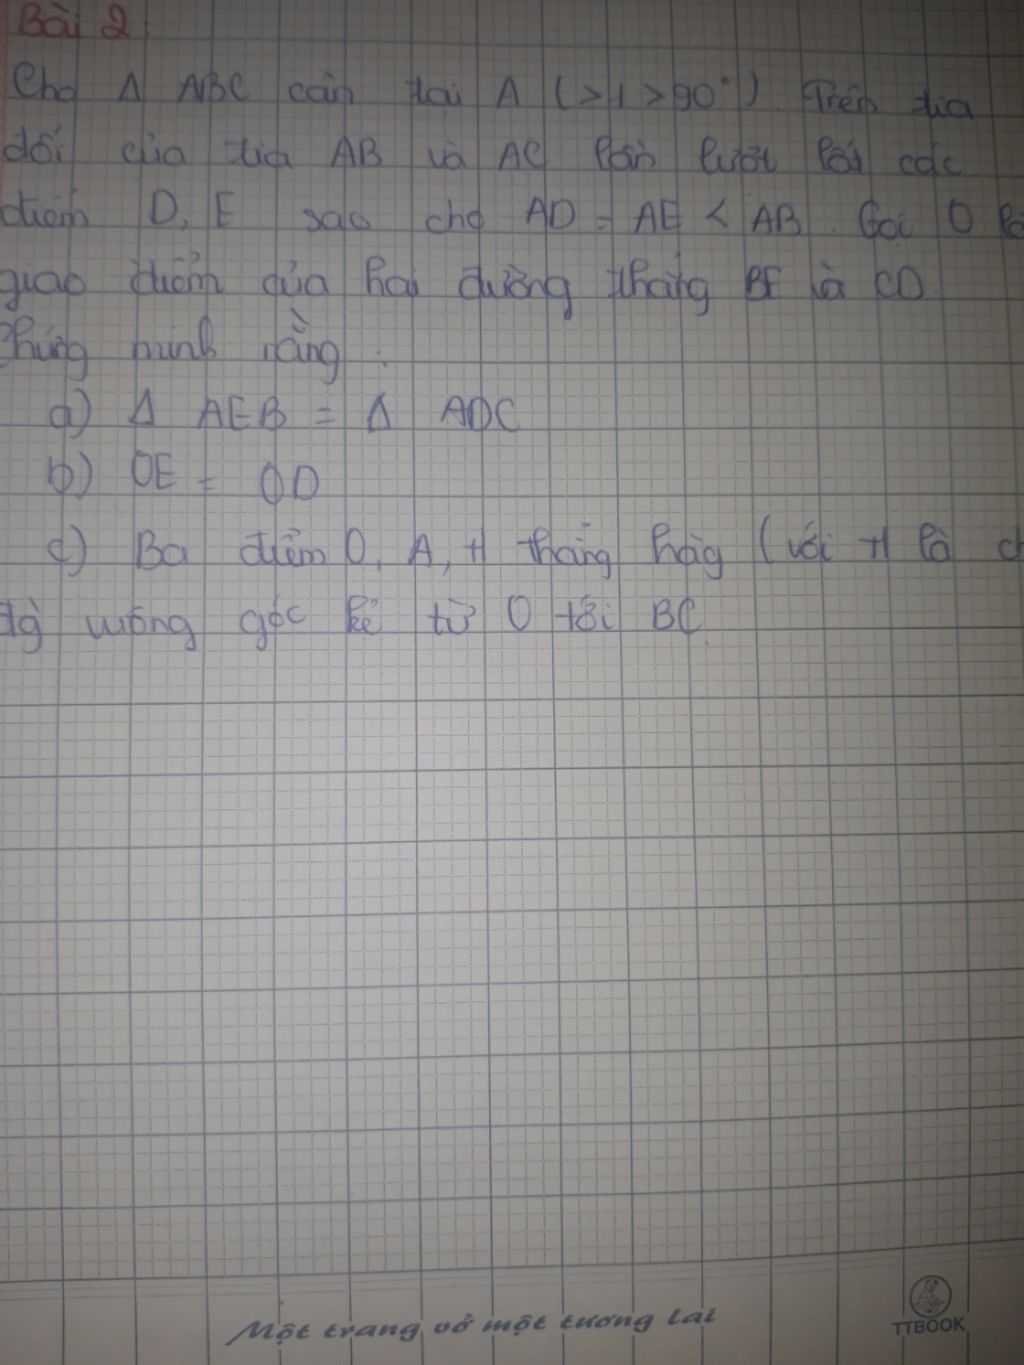 Bài 2:
Cho Δ ABC cân tại A (>1>90°). Trên tia
đối của tia AB và AC lần lượt lấy các
điểm D, E sao cho AD = AE < AB. Gọi O là
giao điểm của hai đường thẳng BE và CD.
Chứng minh rằng:
a) Δ AEB = Δ ADC
b) OE = OD
c) Ba điểm O, A, H thẳng hàg (với H là ch
vuông góc kẻ từ O tới BC.
Một trang vở một tương lai
TTBOOK